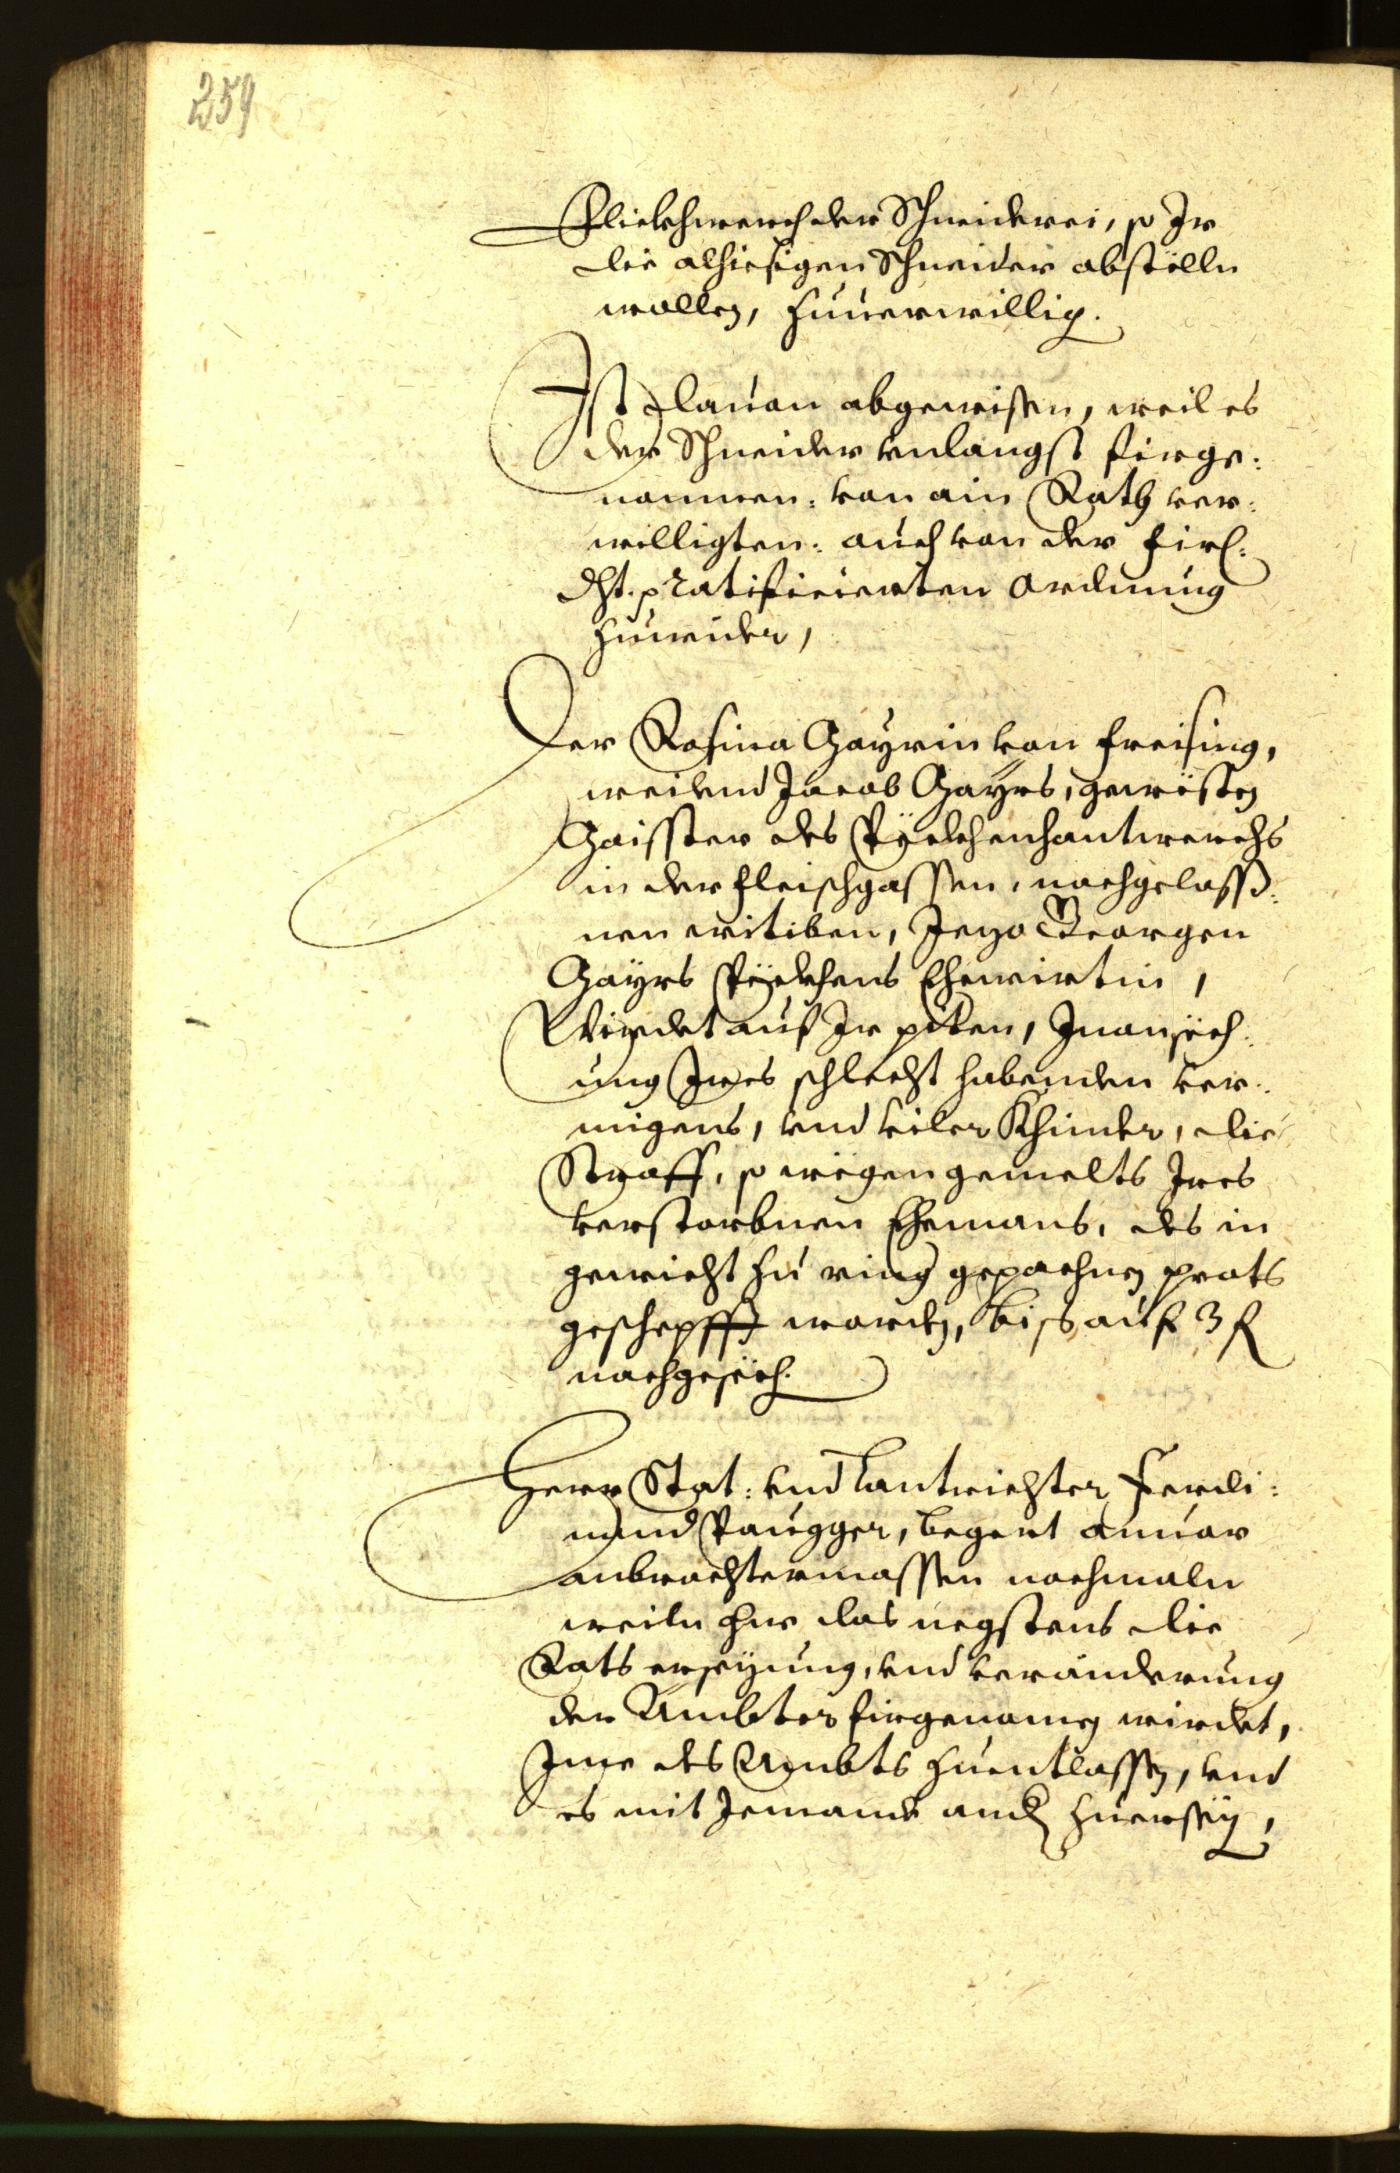 259
Flickhwerch der Schneiderei, so Ir
die alhiesigen Schneider abstölln
wollen, zuuerwillig.
Ist dauon abgewisen, weil es
der Schneider vnlangst firge:
nomnen: von ain Rath ver:
willigten: auch von der firl:
dht: ratificierten Ordnung
zuwider,
Der Rosina Gayrin von Freising,
weilend Jacob Gayrs, gewesten
Maisster des Pöckhenhantwerchs
in der Fleischgassen, nachgelass:
nen witiben, Jezo Georgen
Gayrs Pöckhens Ehewirtin,
Wirdet auf Ir piten, Inansech:
ung Ires schlecht habenden ver:
migens, vnd viler Khinder, die
Straff, so wegen gemelts Ires
verstorbnen Ehemans, des in
gewicht zu ring gepachnen prots
geschepfft worden, biss auf 3 f
nachgesech.
Herr Stat: vnd Lantrichter Ferdi:
nand Paugger, begert anuor
anbrachtermassen nochmaln
weiln das negstens die
Rats ersezung, vnd veränderung
der Ämbter firgenomen wirdet,
Ime des Ambts zuentlassen, vnd
es mit Jemands andern zuersezen,